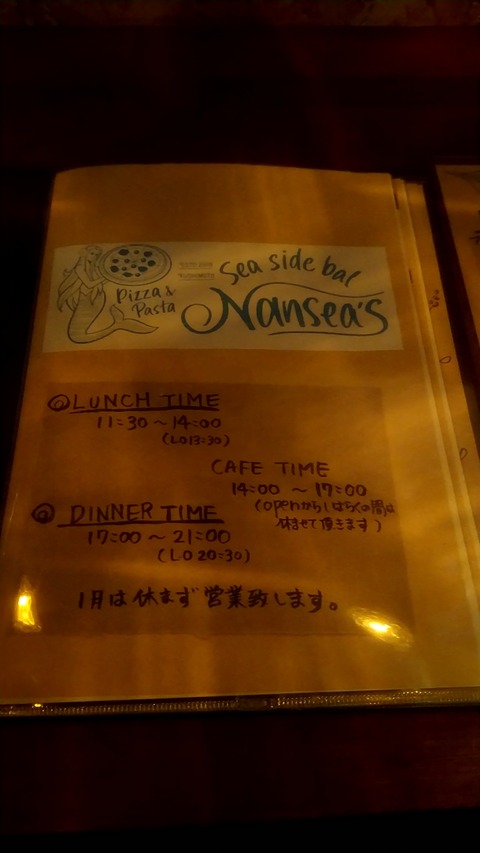 Sea side bal
Pizza &
Pasta
Nansea's
◎LUNCH TIME
11:30 ~ 14:00
(L.O 13:30)
CAFE TIME
14:00 ~ 17:00
(openからしばらくの間は
休ませて頂きます)
◎ DINNER TIME
17:00 ~ 21:00
(L.O 20:30)
1月は休まず営業致します。